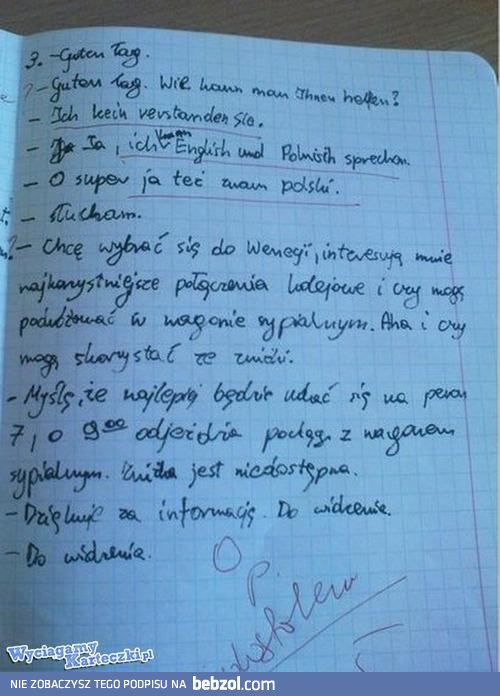 3. - Guten Tag.
- Guten Tag. Wie kann man Ihnen helfen?
- Ich kein verstanden Sie.
- Ja, ich kann English und Polnisch sprechen.
- O super ja też znam polski.
- słucham.
- Chcę wybrać się do Wenegi, interesują mnie
najkorzystniejsze połączenia kolejowe i czy mogę
podróżować w wagonie sypialnym. Aha i czy
mogę skorzystać ze zniżki.
- Myślę, że najlepiej będzie udać się na peron
7, o 9 00 odjeżdża pociąg z wagonem
sypialnym. Zniżka jest niedostępna.
- Dziękuję za informację. Do widzenia.
- Do widzenia.
O
P.
Wyciagamy
Karteczki.pl
NIE ZOBACZYSZ TEGO PODPISU NA bebzol.com